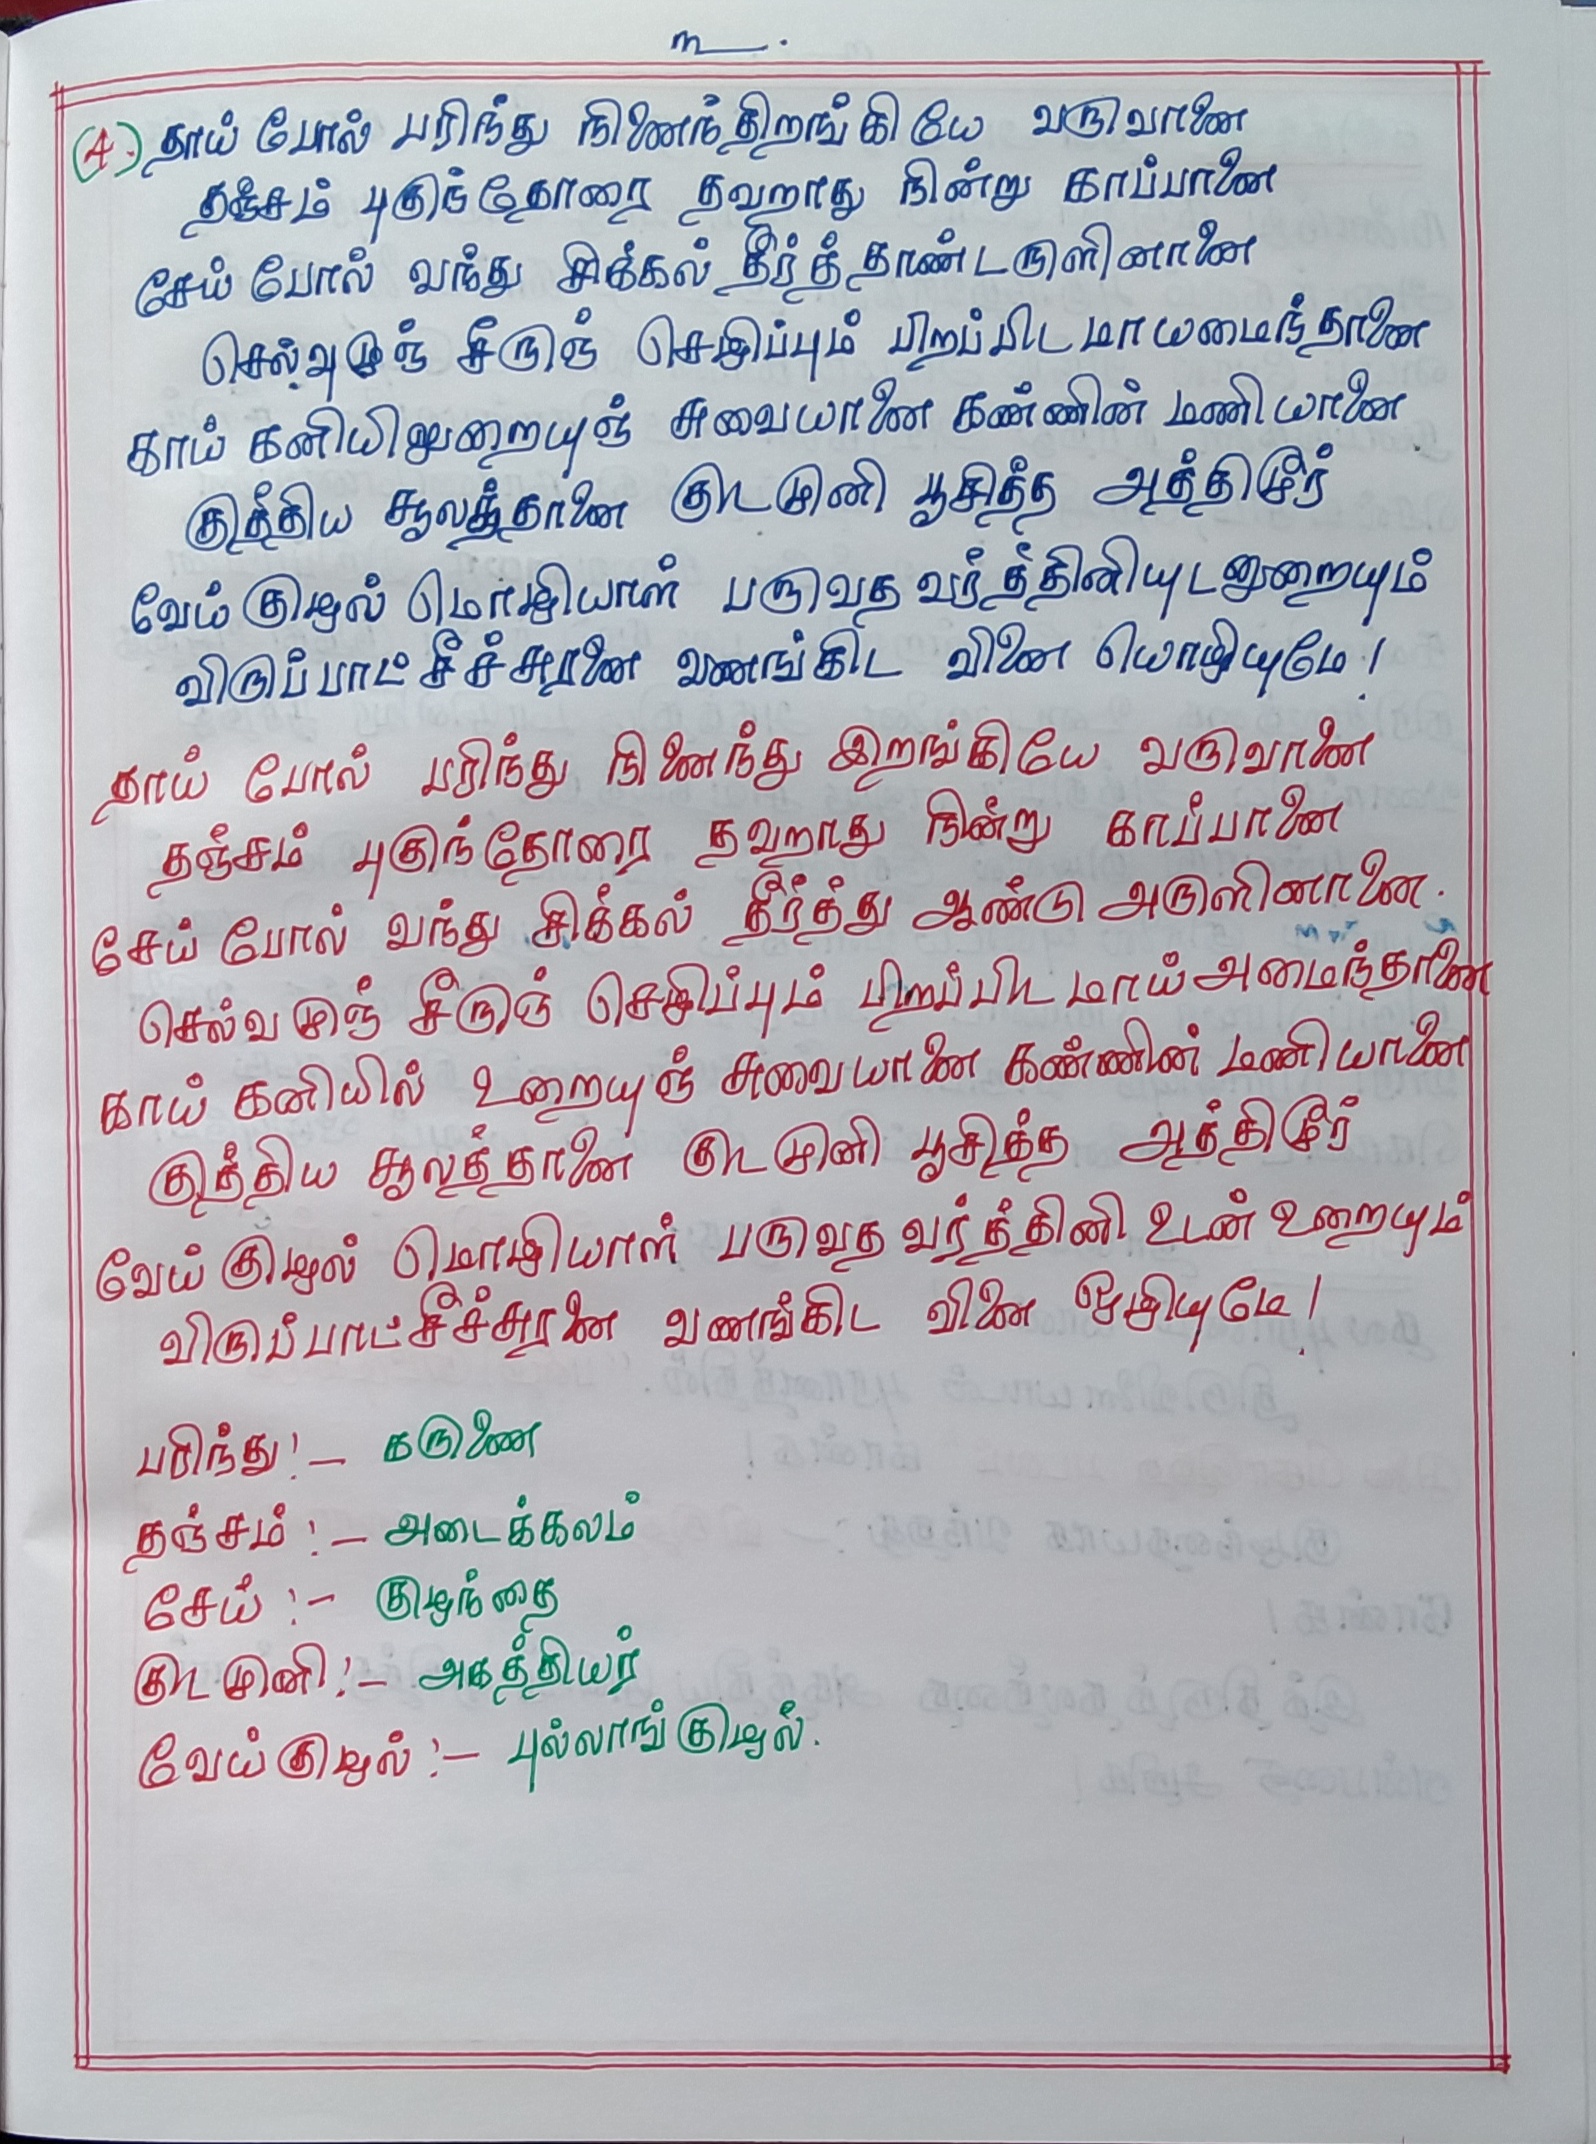 உ.
(4.) தாய் போல் பரிந்து நினைந்திறங்கியே வருவானை
தஞ்சம் புகுந்தோரை தவறாது நின்று காப்பானை
சேய் போல் வந்து சிக்கல் தீர்த்தாண்டருளினானை
செல்வமுஞ் சீருஞ் செழிப்பும் பிறப்பிடமாயமைந்தானை
காய் கனியிலுறையுஞ் சுவையானை கண்ணின் மணியானை
குத்திய சூலத்தானை குடமுனி பூசித்த அத்திமுீர்
வேய் குழல் மொழியாள் பருவத வர்த்தினியுடனுறையும்
விருப்பாட்சீச்சுரனை வணங்கிட வினை யொழியுமே!
தாய் போல் பரிந்து நினைந்து இறங்கியே வருவானை
தஞ்சம் புகுந்தோரை தவறாது நின்று காப்பானை
சேய் போல் வந்து சிக்கல் தீர்த்து ஆண்டு அருளினானை.
செல்வமுஞ் சீருஞ் செழிப்பும் பிறப்பிடமாய் அமைந்தானை
காய் கனியில் உறையுஞ் சுவையானை கண்ணின் மணியானை
குத்திய சூலத்தானை குடமுனி பூசித்த
வேய் குழல் மொழியாள் பருவத வர்த்தினி உடன் உறையும்
விருப்பாட்சீச்சுரனை வணங்கிட வினை ஒழியுமே!
பரிந்து:- கருணை
தஞ்சம்:- அடைக்கலம்
சேய்:- குழந்தை
குடமுனி:- அகத்தியர்
வேய்குழல்:- புல்லாங்குழல்.